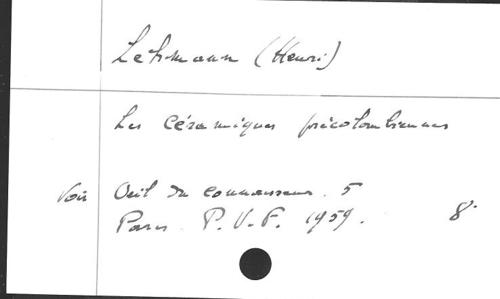 Lehmann (Henri)
Les céramiques précolombiennes
Voir Oeil du connaisseur. 5
Paris. P.U.F. 1959. 8°